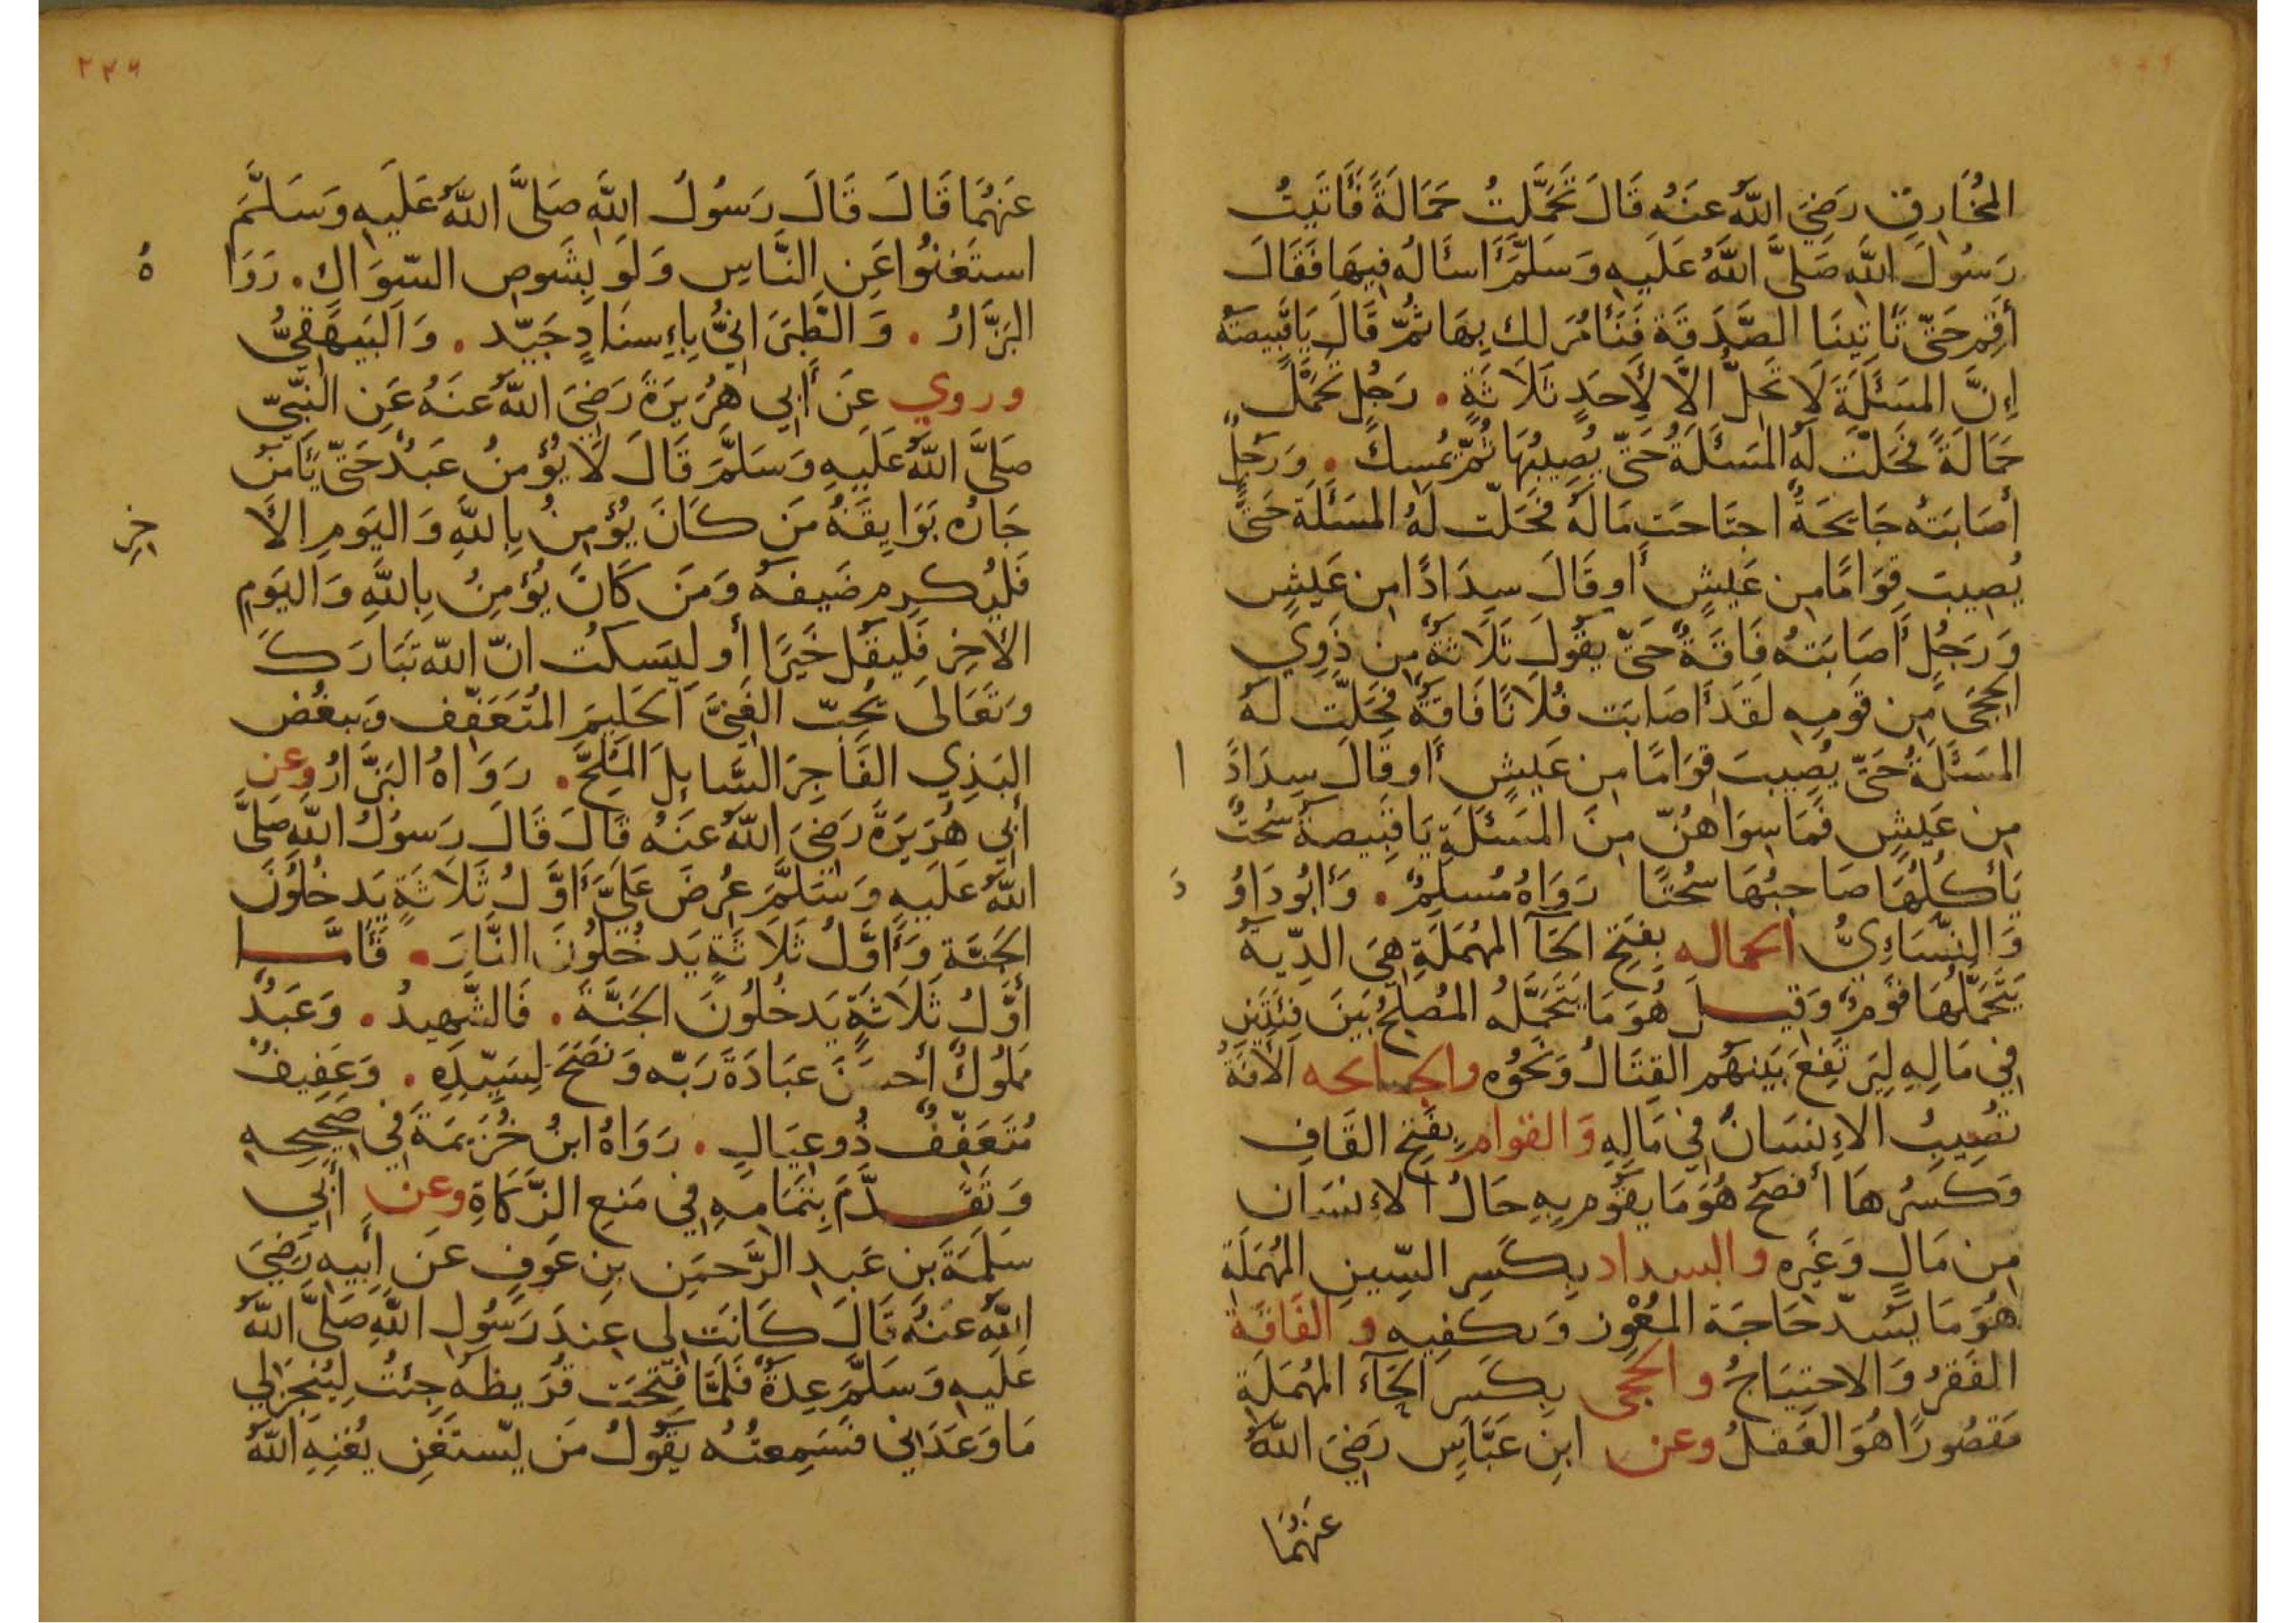 المُخَارِقِ رَضِيَ اللَّهُ عَنهُ قَالَ تَحَمَّلتُ حَمَالَةً فَأَتَيتُ
رَسُولَ اللَّهِ صَلَّى اللَّهُ عَلَيهِ وَسَلَّمَ أَسأَلُه فِيهَا فَقَالَ
أَقِم حَتّى تَأتِينَا الصَّدَقَة فَنَأمُرَ لك بِهَا ثُمّ قَالَ يَا قَبِيصَةُ
إِنَّ المَسئَلَةَ لَا تَحِلُّ الَّا لِأَحَدِ ثَلَاثَةٍ . رَجُلٍ تَحَمَّلَ
حَمَالَةً فَحَلّت لَهُ المَسئَلَةُ حَتّى يُصِيبُهَا ثُمّ يُمسِكُ . وَرَجُلٍ
أَصَابَتهُ جَايِحَةٌ اجتَاحَت مَالَهُ فَحَلّت لَهُ المَسئَلَة حَتّى
يُصِيبَ قِوَامًا مِن عَيشٍ أَو قَالَ سِدَادًا مِن عَيشٍ
وَرَجُلٍ أَصَابَتهُ فَاقَةٌ حَتّى يقُولَ ثَلَاثَةٌ مِن ذَوِي
الحِجَى مِن قَومِهِ لَقَد أَصَابَت فُلَانًا فَاقَةٌ فَحَلّت لَهُ
المَسئَلَةُ حَتّى يُصِيبَ قِوَامًا مِن عَيشٍ أَو قَالَ سِدَادً ا
مِن عَيشٍ فَمَا سِوَاهُنّ مِنَ المَسئَلَةِ يَا قَبِيصَة سُحتٌ
يَأكُلُهَا صَاحِبُهَا سُحتًا رَوَاهُ مُسلِمٌ . وَأَبُو دَاوُ دَ
وَالنّسَاءِيُّ الحماله بِفَتحِ الحَآ المُهمَلَةِ هِيَ الدِّيَة
يَتَحَمَّلُهَا قَومٌ وَقيل هُوَ مَا يَتَحَمَّلُه المُصلِحُ بَينَ فِئَتَينِ
فِي مَالِهِ لِيَرتَفِعَ بَينَهُم القِتَالُ وَنَحُوُه والجايحه الآفَةُ
تُصِيبُ الإِنسَانَ فِي مَالِهِ وَالقوام بِفَتحِ القَافِ
وَكَسرُهَا أَفصَحُ هُوَ مَا يقُوم بِهِ حَالُ الإنسَان
مِن مَالٍ وَغَيرِه والسداد بِكَسرِ السِّينِ المُهمَلَةِ
هُوَ مَا يَسُدّ حَاجَة المُعْوِز وَيكفِيهِ و الفَاقَة
الفَقرُ وَالاحتِيَاجُ والحجى بِكَسرِ الحَآءِ المُهمَلَةِ
مَقصُورًا هُوَ العَقلُ وعن ابنِ عَبَّاسٍ رَضِيَ اللَّهُ
عَنهُمَا
٢٢٦
عَنهُمَا قَالَ قَالَ رَسُولُ اللَّهِ صَلَّى اللَّهُ عَلَيهِ وَسَلَّمَ
استَغنُوا عَنِ النَّاسِ وَلَو بِشَوصِ السّوَاكِ . رَوَا هُ
البَزَّارُ . وَالطَّبَرَانِيُّ بِإِسنَادٍ جَيّد . وَالبَيهَقِيُّ
وروي عَن أَبِي هُرَيرَةَ رَضِيَ اللَّهُ عَنهُ عَنِ النَّبِيِّ
صَلَّى اللَّهُ عَلَيهِ وَسَلَّمَ قَالَ لَا يُؤمِنُ عَبدٌ حَتّى يَأمَنَ
جَارُه بَوَايِقَهُ مَن كَانَ يُؤمِنُ بِاللَّهِ وَاليَومِ الأَ خِرِ
فَليُكرِم ضَيفَهُ وَمَن كَانَ يُؤمِنُ بِاللَّهِ وَاليَومِ
الأخِرِ فَليَقُل خَيرًا أَو لِيَسكُت انّ اللَّه تَبَارَكَ
وَتَعَالَى يُحِبّ الغَنِيَّ الحَلِيمَ المُتَعَفِّف وَيبغُض
البَذِي الفَاجِرَ السَّايِلَ المُلِحَّ . رَوَاهُ البَزَّارُ وعن
أَبِي هُرَيرَةَ رَضِيَ اللَّهُ عَنهُ قَالَ قَالَ رَسولُ اللَّهِ صَلَّى
اللَّهُ عَلَيهِ وَسَلَّمَ عُرِضَ عَلَيَّ أَوَّلُ ثَلَاثَةٍ يَدخُلُونَ
الجَنَّة وَأَوَّلُ ثَلَاثَةٍ يَدخُلُونَ النَّارَ . فَأَمَّا
أَوَّلُ ثَلَاثَةٍ يَدخُلُونَ الجَنَّةَ . فَالشَّهِيدُ . وَعَبدٌ
مَملُوكٌ أَحسَنَ عبَادَةَ رَبّه وَنَصَحَ لِسَيِّدِهِ . وَعَفِيفٌ
مُتَعَفّفٌ ذُو عِيَالٍ . رَوَاهُ ابنُ خُزَيمَة فِي صَحِيحِهِ
وَتَقَدَّمَ بِتَمَامِهِ فِي مَنعِ الزَّكَاةِ وعن أَبِي
سَلَمَةَ بنِ عَبدِ الرَّحمَنِ بنِ عَوفٍ عَن أَبِيهِ رَضِيَ
اللَّهُ عَنهُ قَالَ كَانَت لِي عِندَ رَسُولِ اللَّهِ صَلَّى اللَّهُ
عَلَيهِ وَسَلَّمَ عِدَةٌ فَلَمَّا فُتِحَت قُرَيظَه جِئتُ لِيُنجِزَ لِي
مَا وَعَدَنِي فَسَمِعتُهُ يقُولُ مَن يّستَغنِ يُغنِهِ اللَّهُ